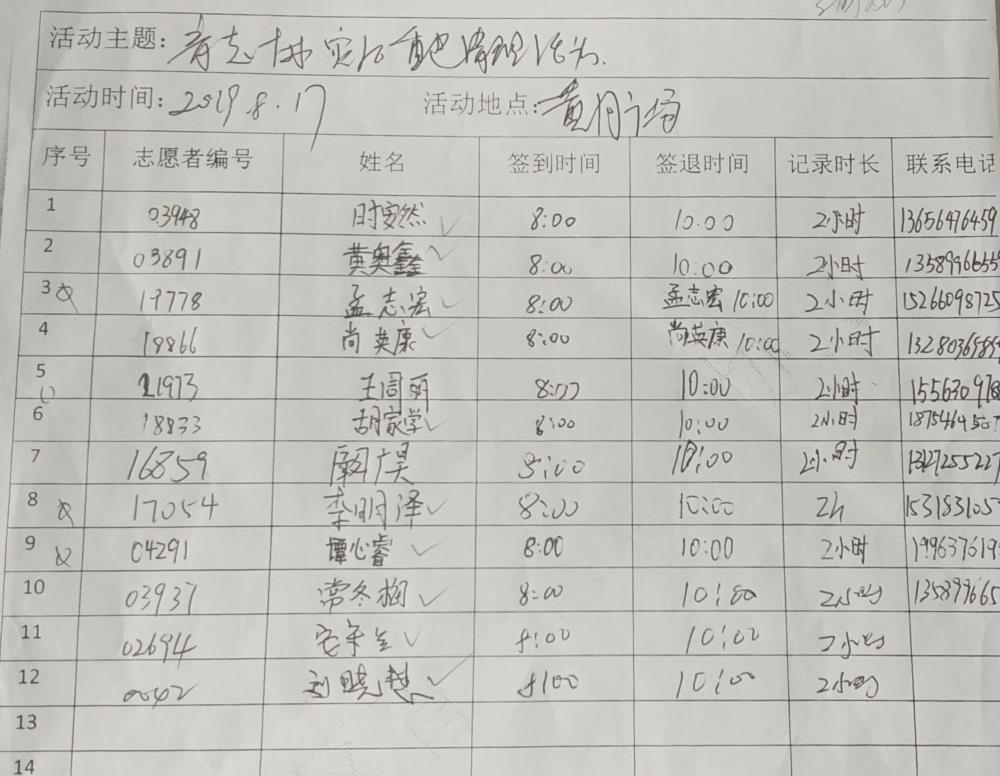 活动主题:青志协
活动时间:2019.8.17 活动地点:黄河广场
序号 志愿者编号 姓名 签到时间 签退时间 记录时长 联系电话
1 03948 时安然 8:00 10:00 2小时 13656476459
2 03891 黄奥鑫 8:00 10:00 2小时 1358996655
3 19778 孟志宏 8:00 孟志宏 10:00 2小时 15266098725
4 18866 尚英康 8:00 尚英康 10:00 2小时
5 21973 王周丽 8:00 10:00 2小时 155630978
6 18833 胡家学 8:00 10:00 2小时
7 16859 8:00 10:00 2小时
8 17054 李明泽 8:00 10:00 2h 153183105
9 04291 谭心睿 8:00 10:00 2小时 199637619
10 03937 常冬梅 8:00 10:00 2小时 135899665
11 02694 8:00 10:00 2小时
12 0042 刘晓慧 8:00 10:00 2小时
13
14